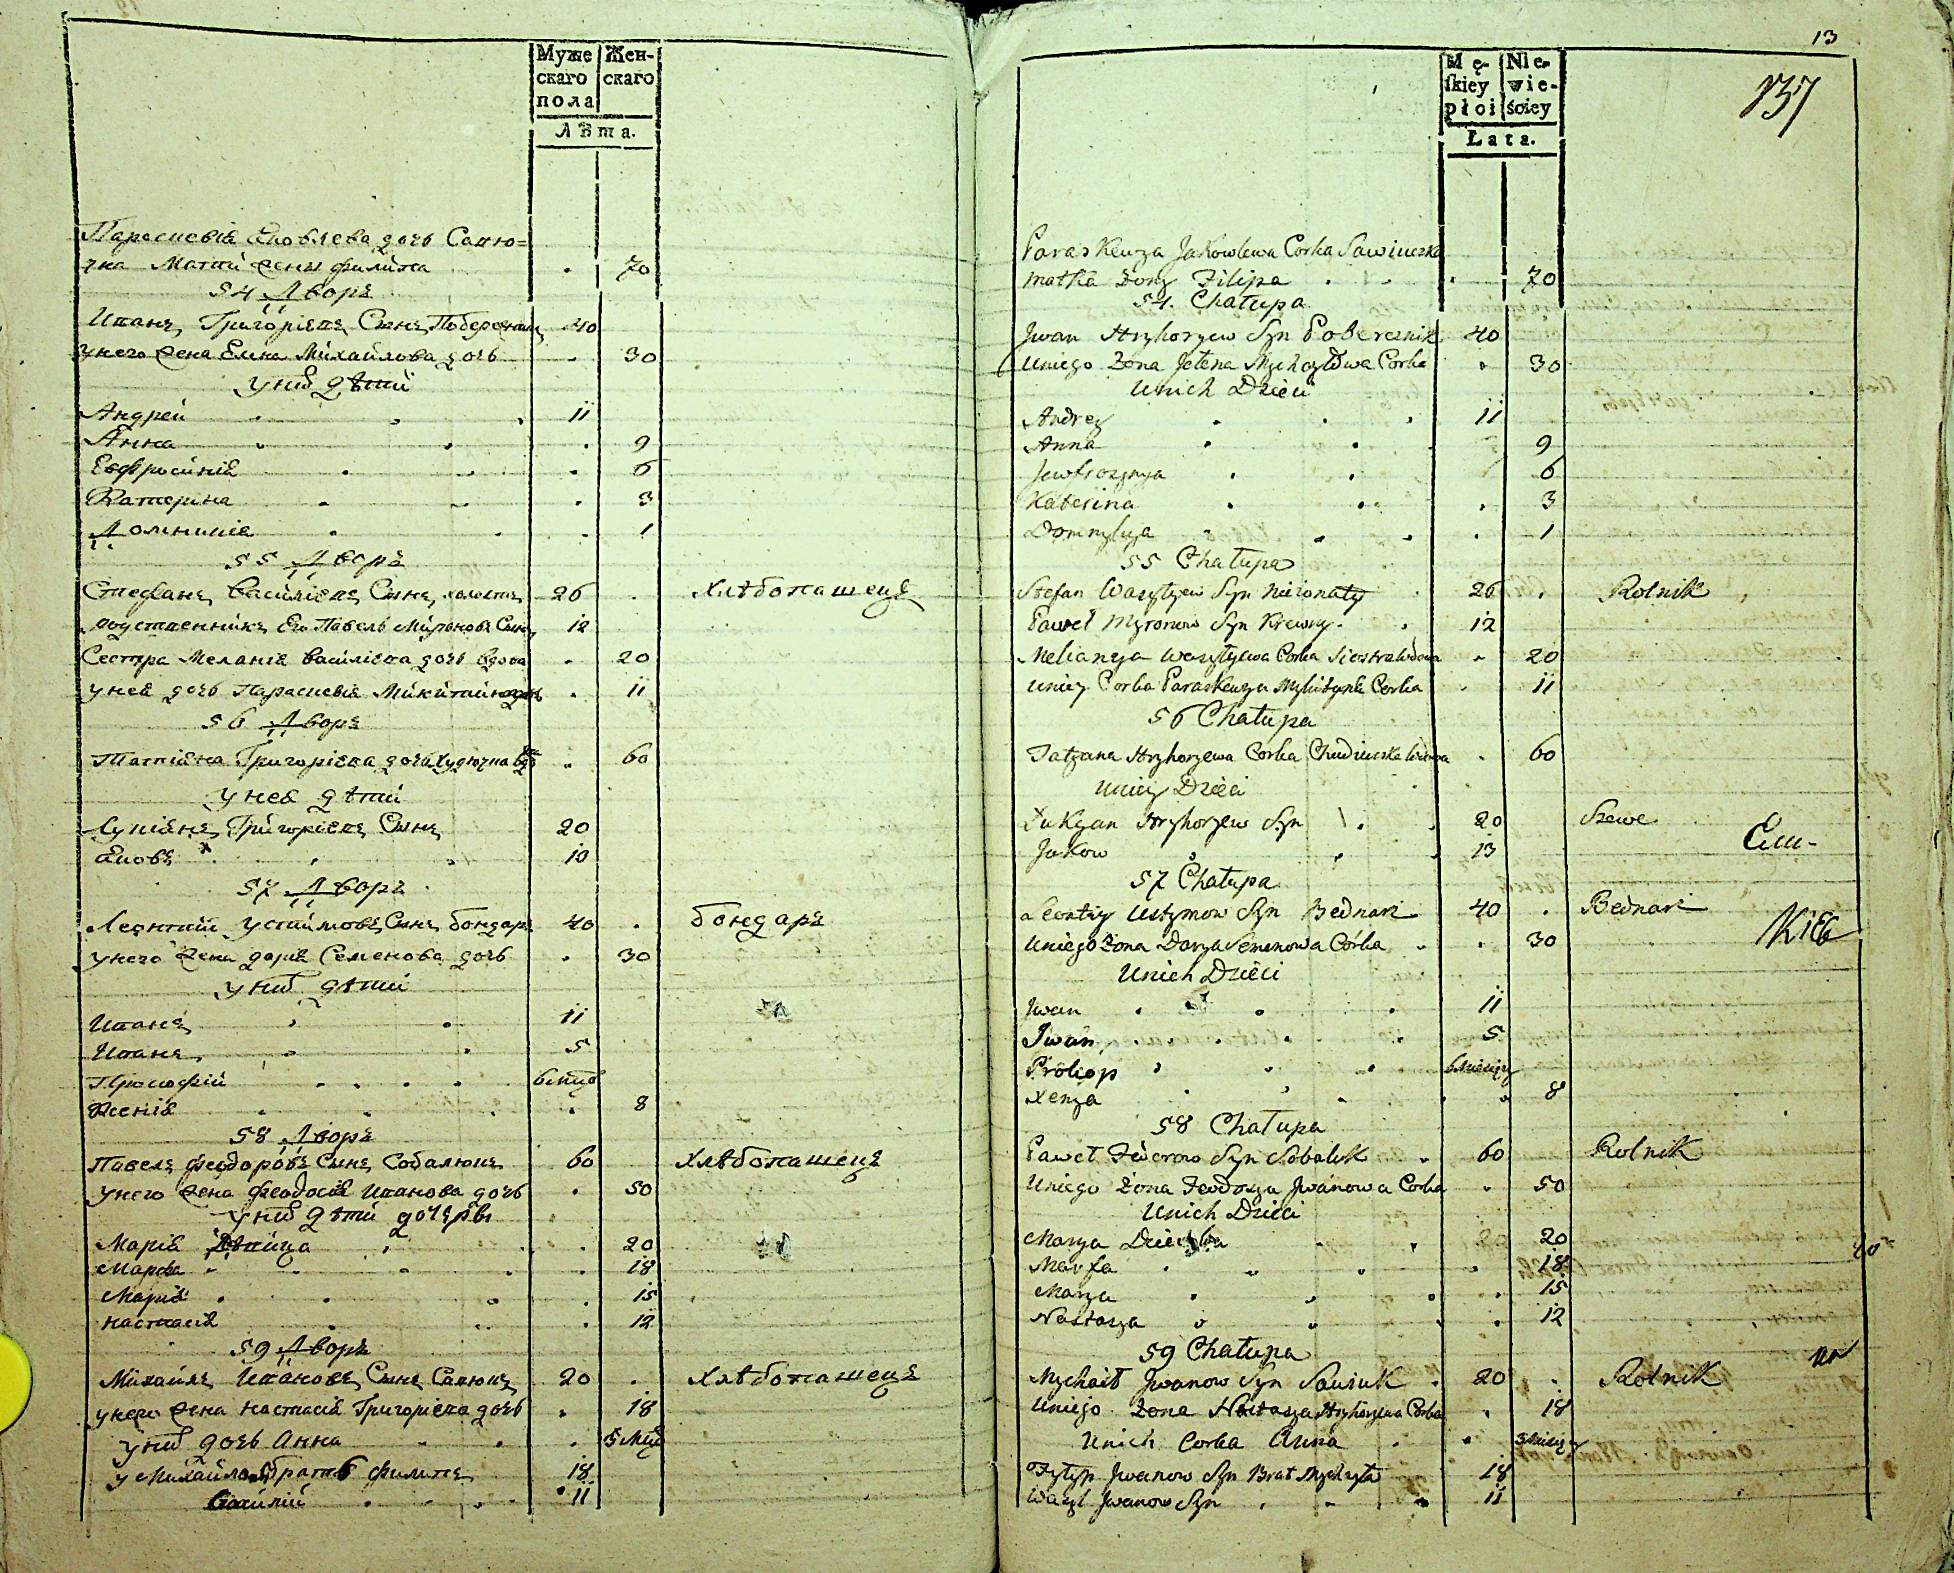 Муже Жен-
скаго скаго
пола
Лѣта.
Параскевія Яковлева дочь Савю=
чка Мати жены Филипа 70
54 Дворъ
Иванъ Григоріевъ Сынъ Побережникъ 40
у него жена Елена Михайлова дочь 30
у нихъ дѣти
Андрей 11
Анна 9
Евфросинія 6
Катерина 3
Домникія 1
55 Дворъ
Стефанъ Василіевъ Сынъ холостъ 26 Хлѣбопашецъ
родственникъ Его Павелъ Мироновъ Сынъ 12
Сестра Меланія Василіева дочь вдова 20
у нея дочь Параскевія Микитина дочь 11
56 Дворъ
Татіяна Григоріева дочь Худючка вдова 60
у нея дѣти
Лукіянъ Григоріевъ Сынъ 20
Яковъ 13
57 Дворъ
Леонтий Устимовъ Сынъ бондаръ 40 бондаръ
у него жена дарія Семенова дочь 30
у нихъ дѣти
Иванъ 11
Иванъ 5
Прокофій 6 мцъ
Ксенія 8
58 Дворъ
Павелъ Феодоровъ Сынъ Собалюкъ 60 Хлѣбопашецъ
у него жена Феодосія Иванова дочь 50
у нихъ дѣти дочери
Марія Дѣвица 20
Марфа 18
Марія 15
настасія 12
59 Дворъ
Михайлъ Ивановъ Сынъ Савюкъ 20 Хлѣбопашецъ
у него жена настасія Григоріева дочь 18
у нихъ дочь Анна 5 мцъ
у Михайла братъ Филипъ 18
Василій 11
13
Mę- Nie-
skiey wie-
płci ściey
Lata.
137
Paraskewya Jakowlewa Corka Sawiuczka
matka Zony Filipa 70
54. Chałupa
Jwan Hryhoryew Syn Pobereznik 40
Uniego Zona Jelena Mychayłowa Corka 30
Unich Dzieci
Andrey 11
Anna 9
Jewfrozynya 6
Katerina 3
Domnykya 1
55 Chałupa
Stefan Wasylyew Syn nieżonaty 26 Rolnik
Paweł Myronow Syn Krewny 12
Melianya Wasylyewa Corka Siostra Wdowa 20
Uniey Corka Paraskewya Mykityna Corka 11
56 Chałupa
Tatyana Hryhoryewa Corka Chudiuczka Wdowa 60
Uniey Dzieci
Łukyan Hryhoryew Syn 20 Szewc
Jakow 13
57 Chałupa
Leontiy Ustymow Syn Bednarz 40 Bednarz
Uniego Zona Darya Semenowa Córka 30
Unich Dzieci
Iwan 11
Iwan 5
Prokop 6 miesięcy
Xenya 8
58 Chałupa
Paweł Fedorow Syn Sobaluk 60 Rolnik
Uniego Zona Feodosya Jwanowa Corka 50
Unich Dzieci
Marya Dziewka 20
Marfa 18
Marya 15
Nastasya 12
59 Chałupa
Mychaił Jwanow Syn Sawiuk 20 Rolnik
Uniego Zona Nastasya Hryhoryewa Corka 18
Unich Corka Anna 5 miesięcy
Fylyp Jwanow Syn Brat Mychayła 18
Wasyl Jwanow Syn 11